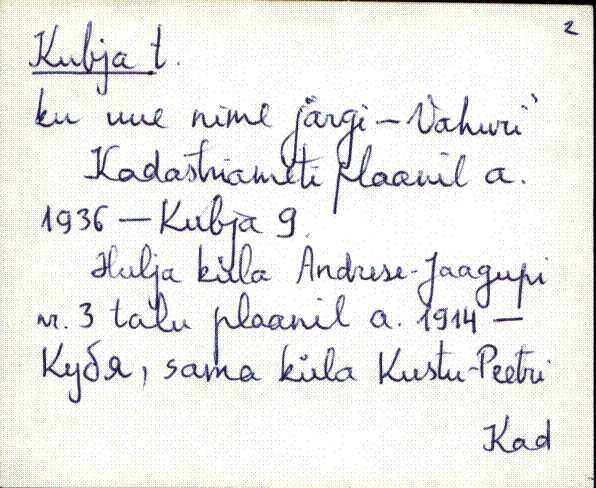 2
Kubja t.
ku uue nime järgi – Vahuri"
Kadastriameti plaanil a.
1936 – Kubja 9.
Hulja küla Andrese-Jaagupi
nr. 3 talu plaanil a. 1914 –
Кубя, sama küla Kustu-Peetri
Kad